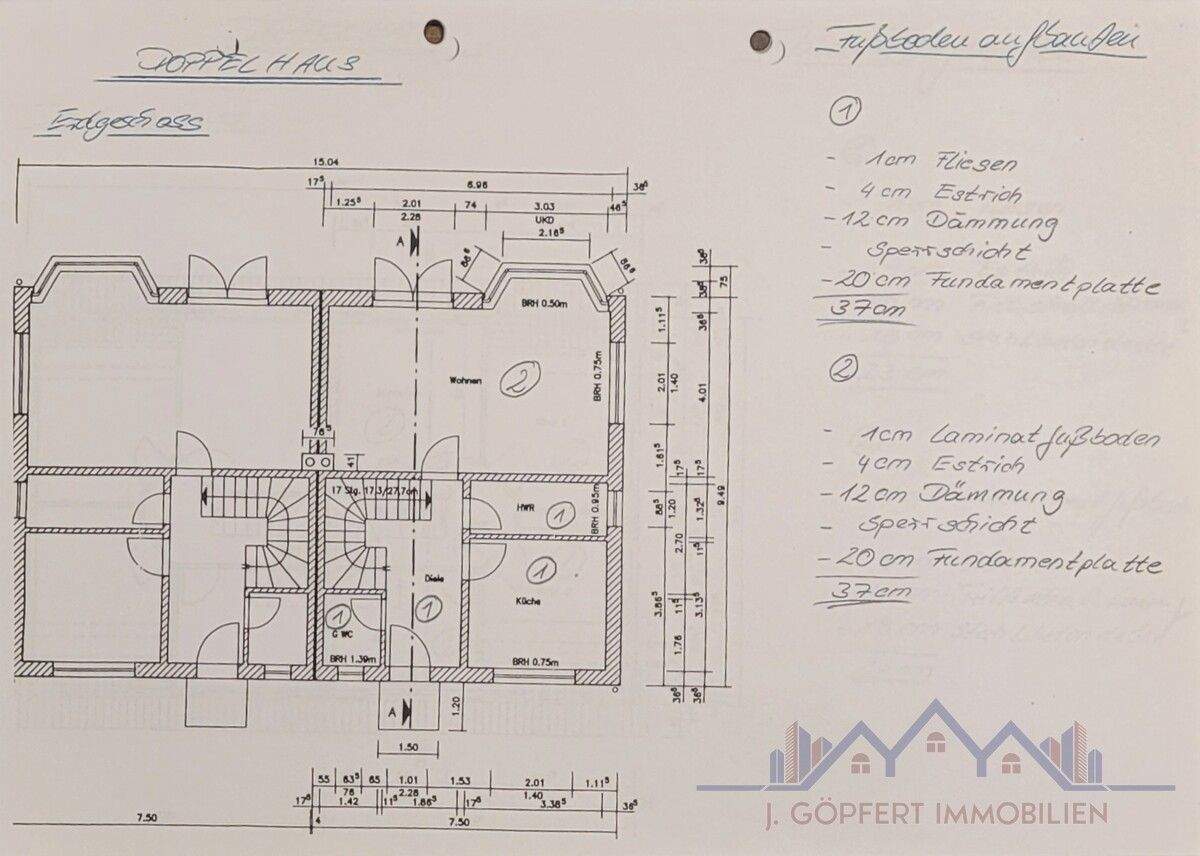 DOPPELHAUS
Erdgeschoss
Fußbodenaufbauten
1
- 1cm Fliesen
- 4cm Estrich
- 12cm Dämmung
- Sperrschicht
- 20cm Fundamentplatte
37cm
2
- 1cm Laminatfußboden
- 4cm Estrich
- 12cm Dämmung
- Sperrschicht
- 20cm Fundamentplatte
37cm
15.04
17⁵ 6.96 36⁵
1.25⁵ 2.01 74 3.03 46⁵
2.26 UKD
2.16⁵
A
BRH 0.50m
Wohnen 2
BRH 0.75m
76⁵
41
17 Stg. 17.3/27.7cm
HWR 1
BRH 0.95m
Diele 1
Küche 1
1
G WC
BRH 1.39m
BRH 0.75m
A
1.20
1.50
1.11⁵ 2.01 1.61⁵ 88⁵ 3.86⁵
1.40 17⁵ 1.20 2.70 11⁵ 1.76 36⁵
36⁵ 4.01 17⁵ 1.32⁵ 11⁵ 3.13⁵ 36⁵
75
9.49
55 63⁵ 65 1.01 1.53 2.01 1.11⁵
76 2.26 1.40
17⁵ 1.42 11⁵ 1.86⁵ 17⁵ 3.38⁵ 36⁵
7.50 4 7.50
J. GÖPFERT IMMOBILIEN